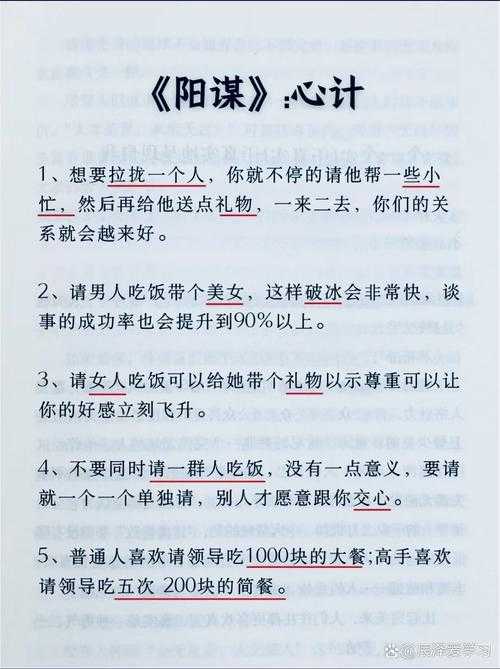 《阳谋》:心计
1、想要拉拢一个人，你就不停的请他帮一些小
忙，然后再给他送点礼物，一来二去，你们的关
系就会越来好。
2、请男人吃饭带个美女，这样破冰会非常快，谈
事的成功率也会提升到90%以上。
3、请女人吃饭可以给她带个礼物以示尊重可以让
你的好感立刻飞升。
4、不要同时请一群人吃饭，没有一点意义，要请
就一个一个单独请，别人才愿意跟你交心。
5、普通人喜欢请领导吃1000块的大餐;高手喜欢
请领导吃五次 200块的简餐。
@辰泽爱学习